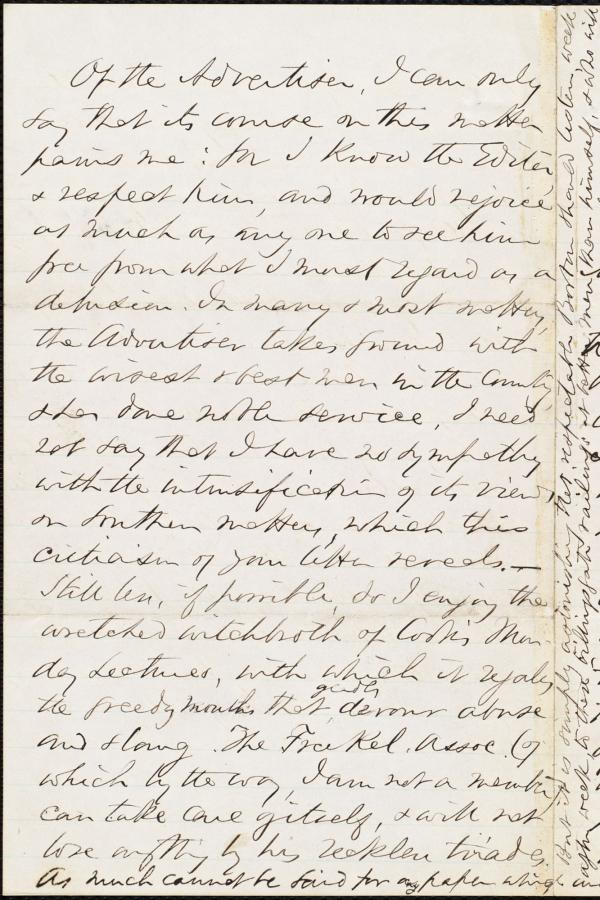 Of the Advertiser, I can only
say that its course on this matter
pains me: for I know the Editor
& respect him, and would rejoice
as much as any one to see him
free from what I must regard as a
delusion. In many & most matters,
the Advertiser takes ground with
the wisest & best men in the Country,
& has done noble service, I need
not say that I have no sympathy
with the intensification of its views
on Southern matters, which this
criticism of your letter reveals.—
Still less, if possible, do I enjoy the
wretched witchbroth of Cook's Mon-
day Lectures, with which it regales
the greedy mouths that gladly devour abuse
and slang. The Free Rel. Assoc. (of
which by the way, I am not a member)
can take care of itself, & will not
lose anything by his reckless tirades.
As much cannot be said for any paper which
But it is simply astonishing that respectable Boston should listen, week
after week to these billingsgate railings at better men than himself,